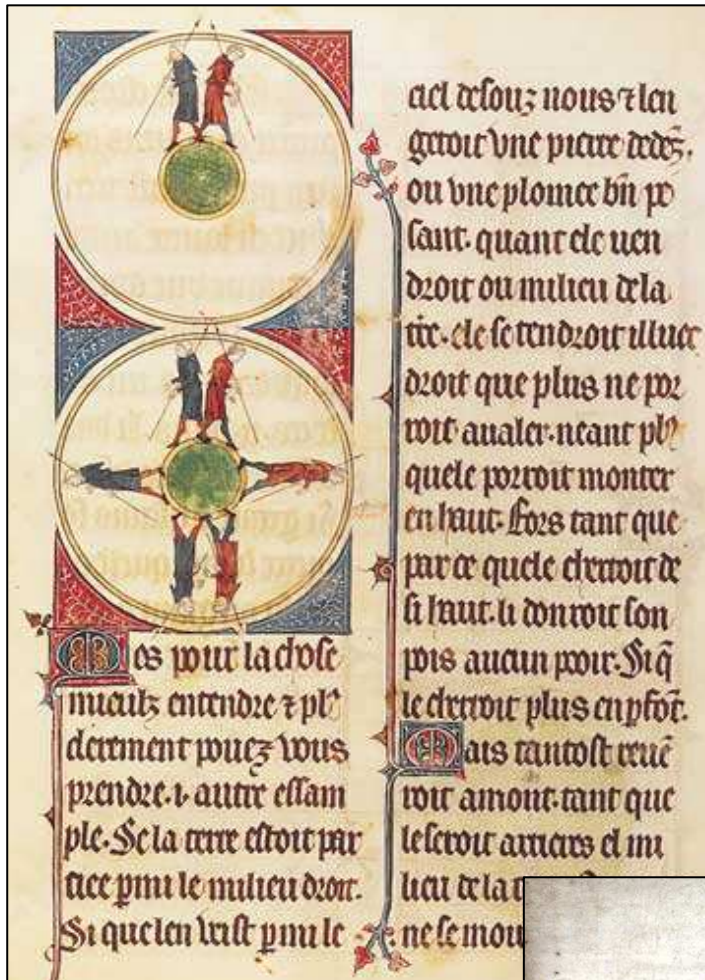 Mes pour la chose
mieulz entendre ⁊ plꝰ
clerement pouez vous
prendre .i. autre essam
ple. Se la terre estoit par
tiee pmi le milieu droit.
Si que len veist pmi le
ciel desouz nous ⁊ len
getoit vne pierre dedēz.
ou vne plomee bn̄ pe
sant. quant ele uen
droit ou milieu de la
tr̄e. ele se tendroit illuec
droit que plus ne por
roit aualer. neant plꝰ
quele porroit monter
en haut. Fors tant que
par ce quele cherroit de
si haut. li donroit son
pois aucun pooir. Si q̄
le cherroit plus en pfōt.
Mais tantost reuē
roit amont. tant que
le seroit arriers el mi
lieu de la
ne se mou